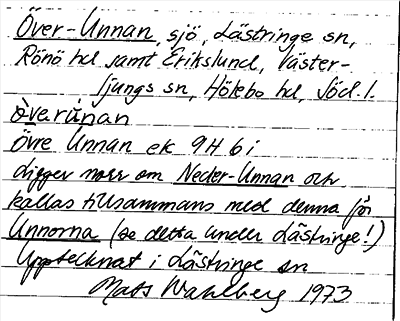 Över-Unnan, sjö, Lästringe sn,
Rönö hd samt Erikslund, Väster-
ljungs sn, Hölebo hd, Söd. l.
ò̀verùnan
Övre Unnan ek 9H 6i
ligger norr om Neder-Unnan och
kallas tillsammans med denna för
Unnorna (se detta under Lästringe!)
Upptecknat i Lästringe sn
Mats Wahlberg 1973